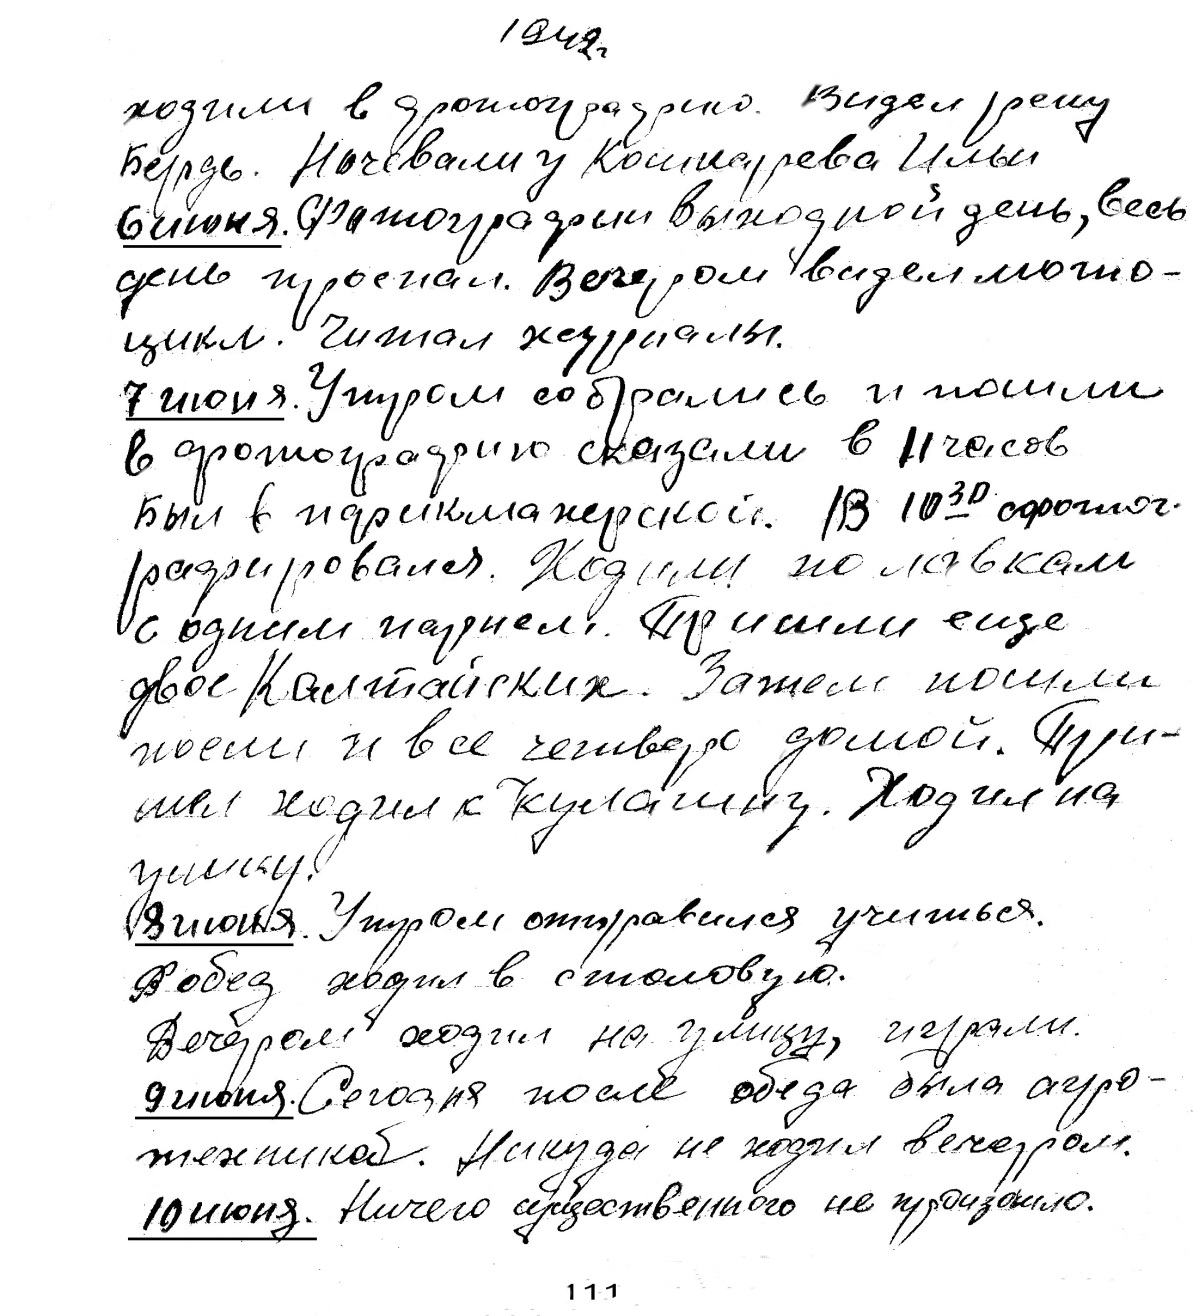 1942г.
ходили в фотографию. Видел реку
Бердь. Ночевали у Кошкарева Ильи
6 июня. Фотографии выходной день, весь
день проспал. Вечером видел мото-
цикл. Читал журналы.
7 июня. Утром собрались и пошли
в фотографию сказали в 11 часов
был в парикмахерской. В 10 30 сфотог-
рафировался. Ходили по лавкам
с одним парнем. Пришли еще
двое Калтайских. Затем пошли
поели и все четверо домой. При-
шел ходил к Кулагину. Ходил на
улику.
8 июня. Утром отправился учиться.
В обед ходил в столовую.
Вечером ходил на улицу, играли.
9 июня. Сегодня после обеда была агро-
техникой. Никуда не ходил вечером.
10 июня. Ничего существенного не произошло.
111